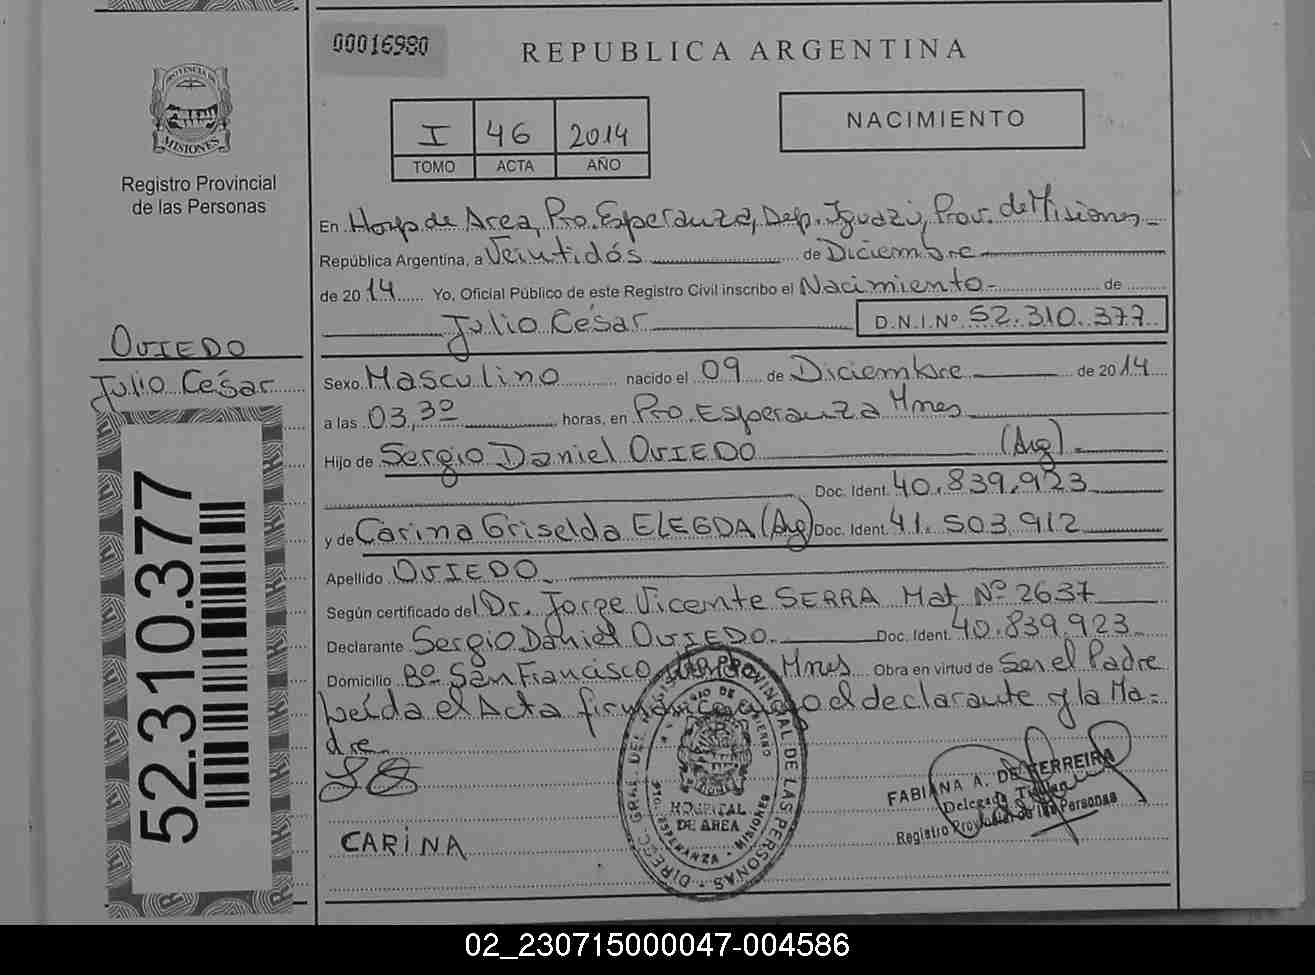 00016980
REPUBLICA ARGENTINA
I 46 2014
TOMO ACTA AÑO
NACIMIENTO
PROVINCIA DE
MISIONES
Registro Provincial
de las Personas
En Hosp. de Area, Pto. Esperanza, Dep. Iguazú, Prov. de Misiones
República Argentina, a Veintidós de Diciembre
de 2014 Yo, Oficial Público de este Registro Civil inscribo el Nacimiento de
Julio César D.N.I.Nº 52.310.377
OVIEDO
Julio César
Sexo Masculino nacido el 09 de Diciembre de 2014
a las 03,30 horas, en Pto. Esperanza Mnes
Hijo de Sergio Daniel OVIEDO (Arg)
Doc. Ident. 40.839.923
y de Carina Griselda ELEGDA (Arg) Doc. Ident. 41.503.912
Apellido OVIEDO
Según certificado del Dr. Jorge Vicente SERRA Mat Nº 2637
Declarante Sergio Daniel OVIEDO Doc. Ident. 40.839.923
Domicilio Bº San Francisco Mnes Obra en virtud de Ser el Padre
Leída el Acta el declarante y la Ma-
dre
CARINA
52.310.377
DIRECC. GRAL. DEL REGISTRO PROVINCIAL DE LAS PERSONAS
HOSPITAL
DE AREA
PTO. ESPERANZA - MISIONES
FABIANA A. DE FERREIRA
Delegada Titular
Registro Provincial de las Personas
02_230715000047-004586